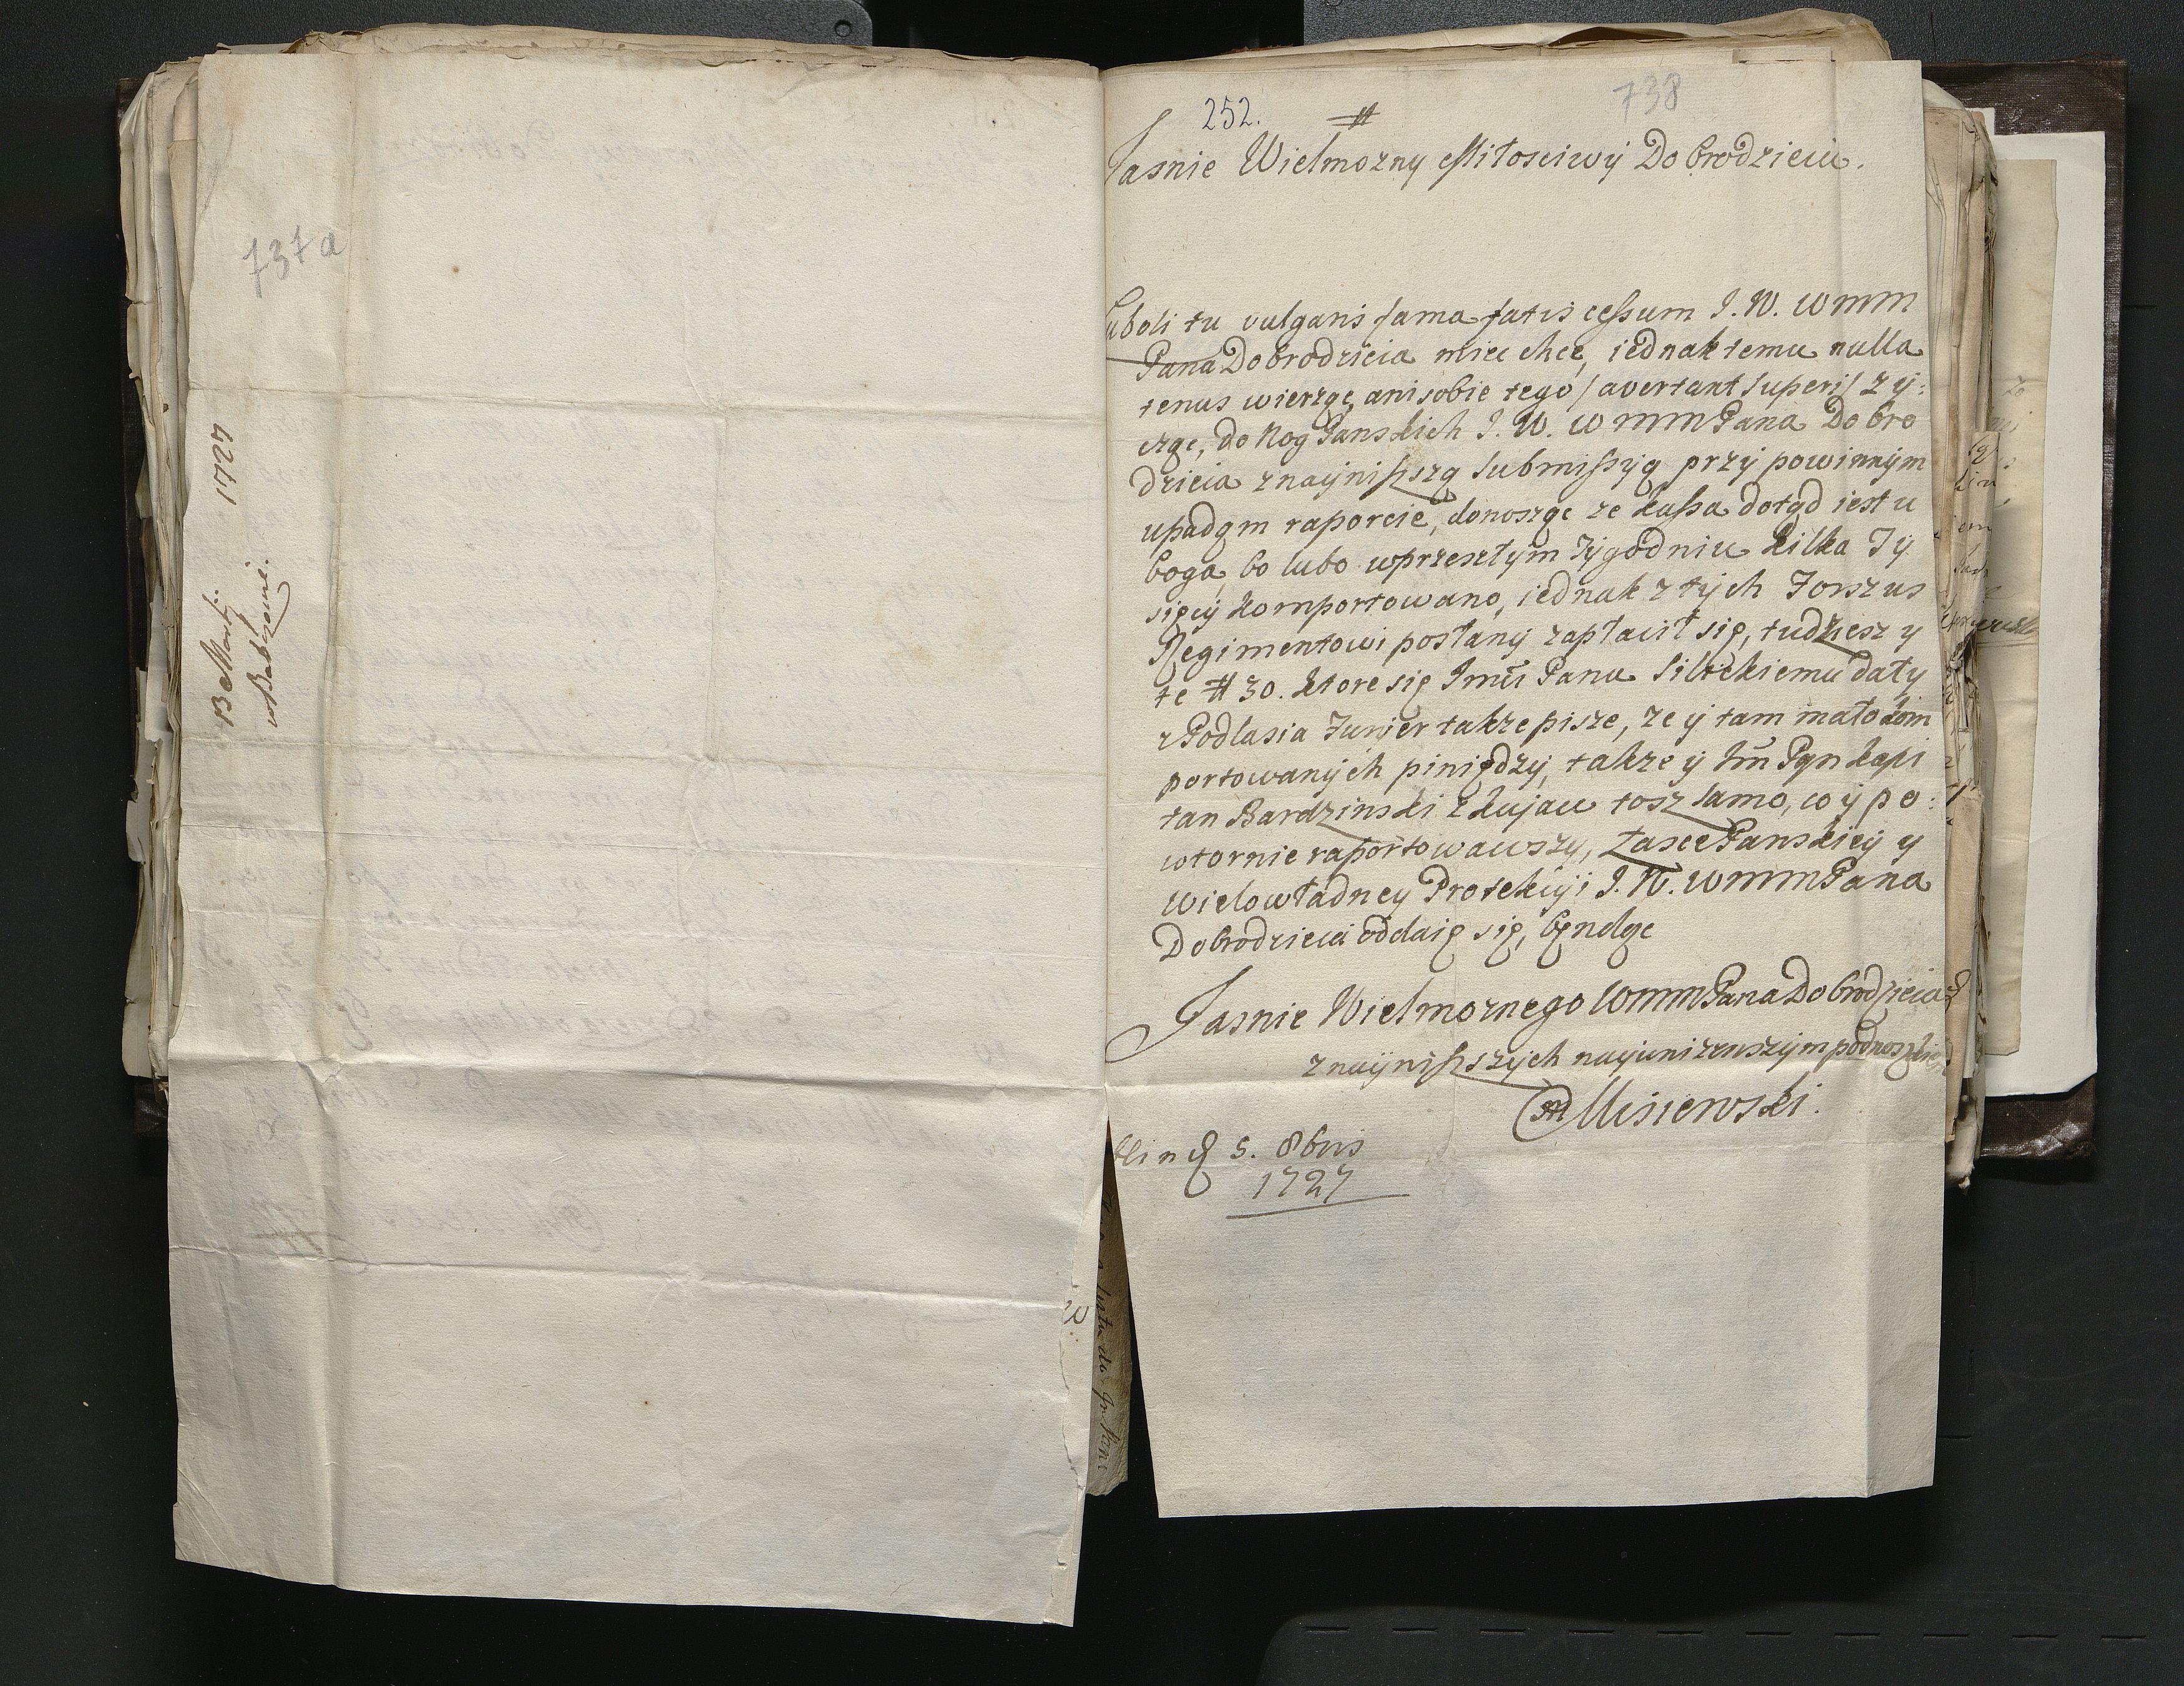 737a
13 Martj. 1727
w Babczewie.
252.
738
Jasnie Wielmozny Miłosciwÿ Dobrodzieiu.
Luboli tu vulgaris fama fatis cessum J. W. WMM
Pana Dobrodzieia miec chce, iednak temu nulla
tenus wierzę, ani sobie tego / avertant Superi / zÿ:
czę, do Nog Panskich J. W. WMMPana Dobro
dzieia znaÿniższą Submissÿą przÿ powinnÿm
upadąm raporcie, donosząc ze kassa dotąd iest u
boga, bo lubo wprzeszłÿm Tÿgodniu kilka Tÿ
sięcÿ komportowano, iednak z tÿch Forszus
Regimentowi posłanÿ zapłacił się, tudziesz y
te # 30. ktore się Jmci Panu Silickiemu dałÿ
z Podlasia Junier takze pisze, ze ÿ tam mało kom
portowanÿch piniędzÿ, takze ÿ Jm Pąn Kapi
tan Bardzinski z Kujaw tosz samo, co ÿ po:
wtornie raportowawszÿ, Łasce Panskieÿ y
Wielowładneÿ Protekcÿi J. W. WMMPana
Dobrodzieia oddaię się, będąc
Jasnie Wielmoznego WMMPana Dobrodzieia
znaÿniższÿch nayunizenszÿm podnoszkiem
Misiewski.
5. 8bris
1727